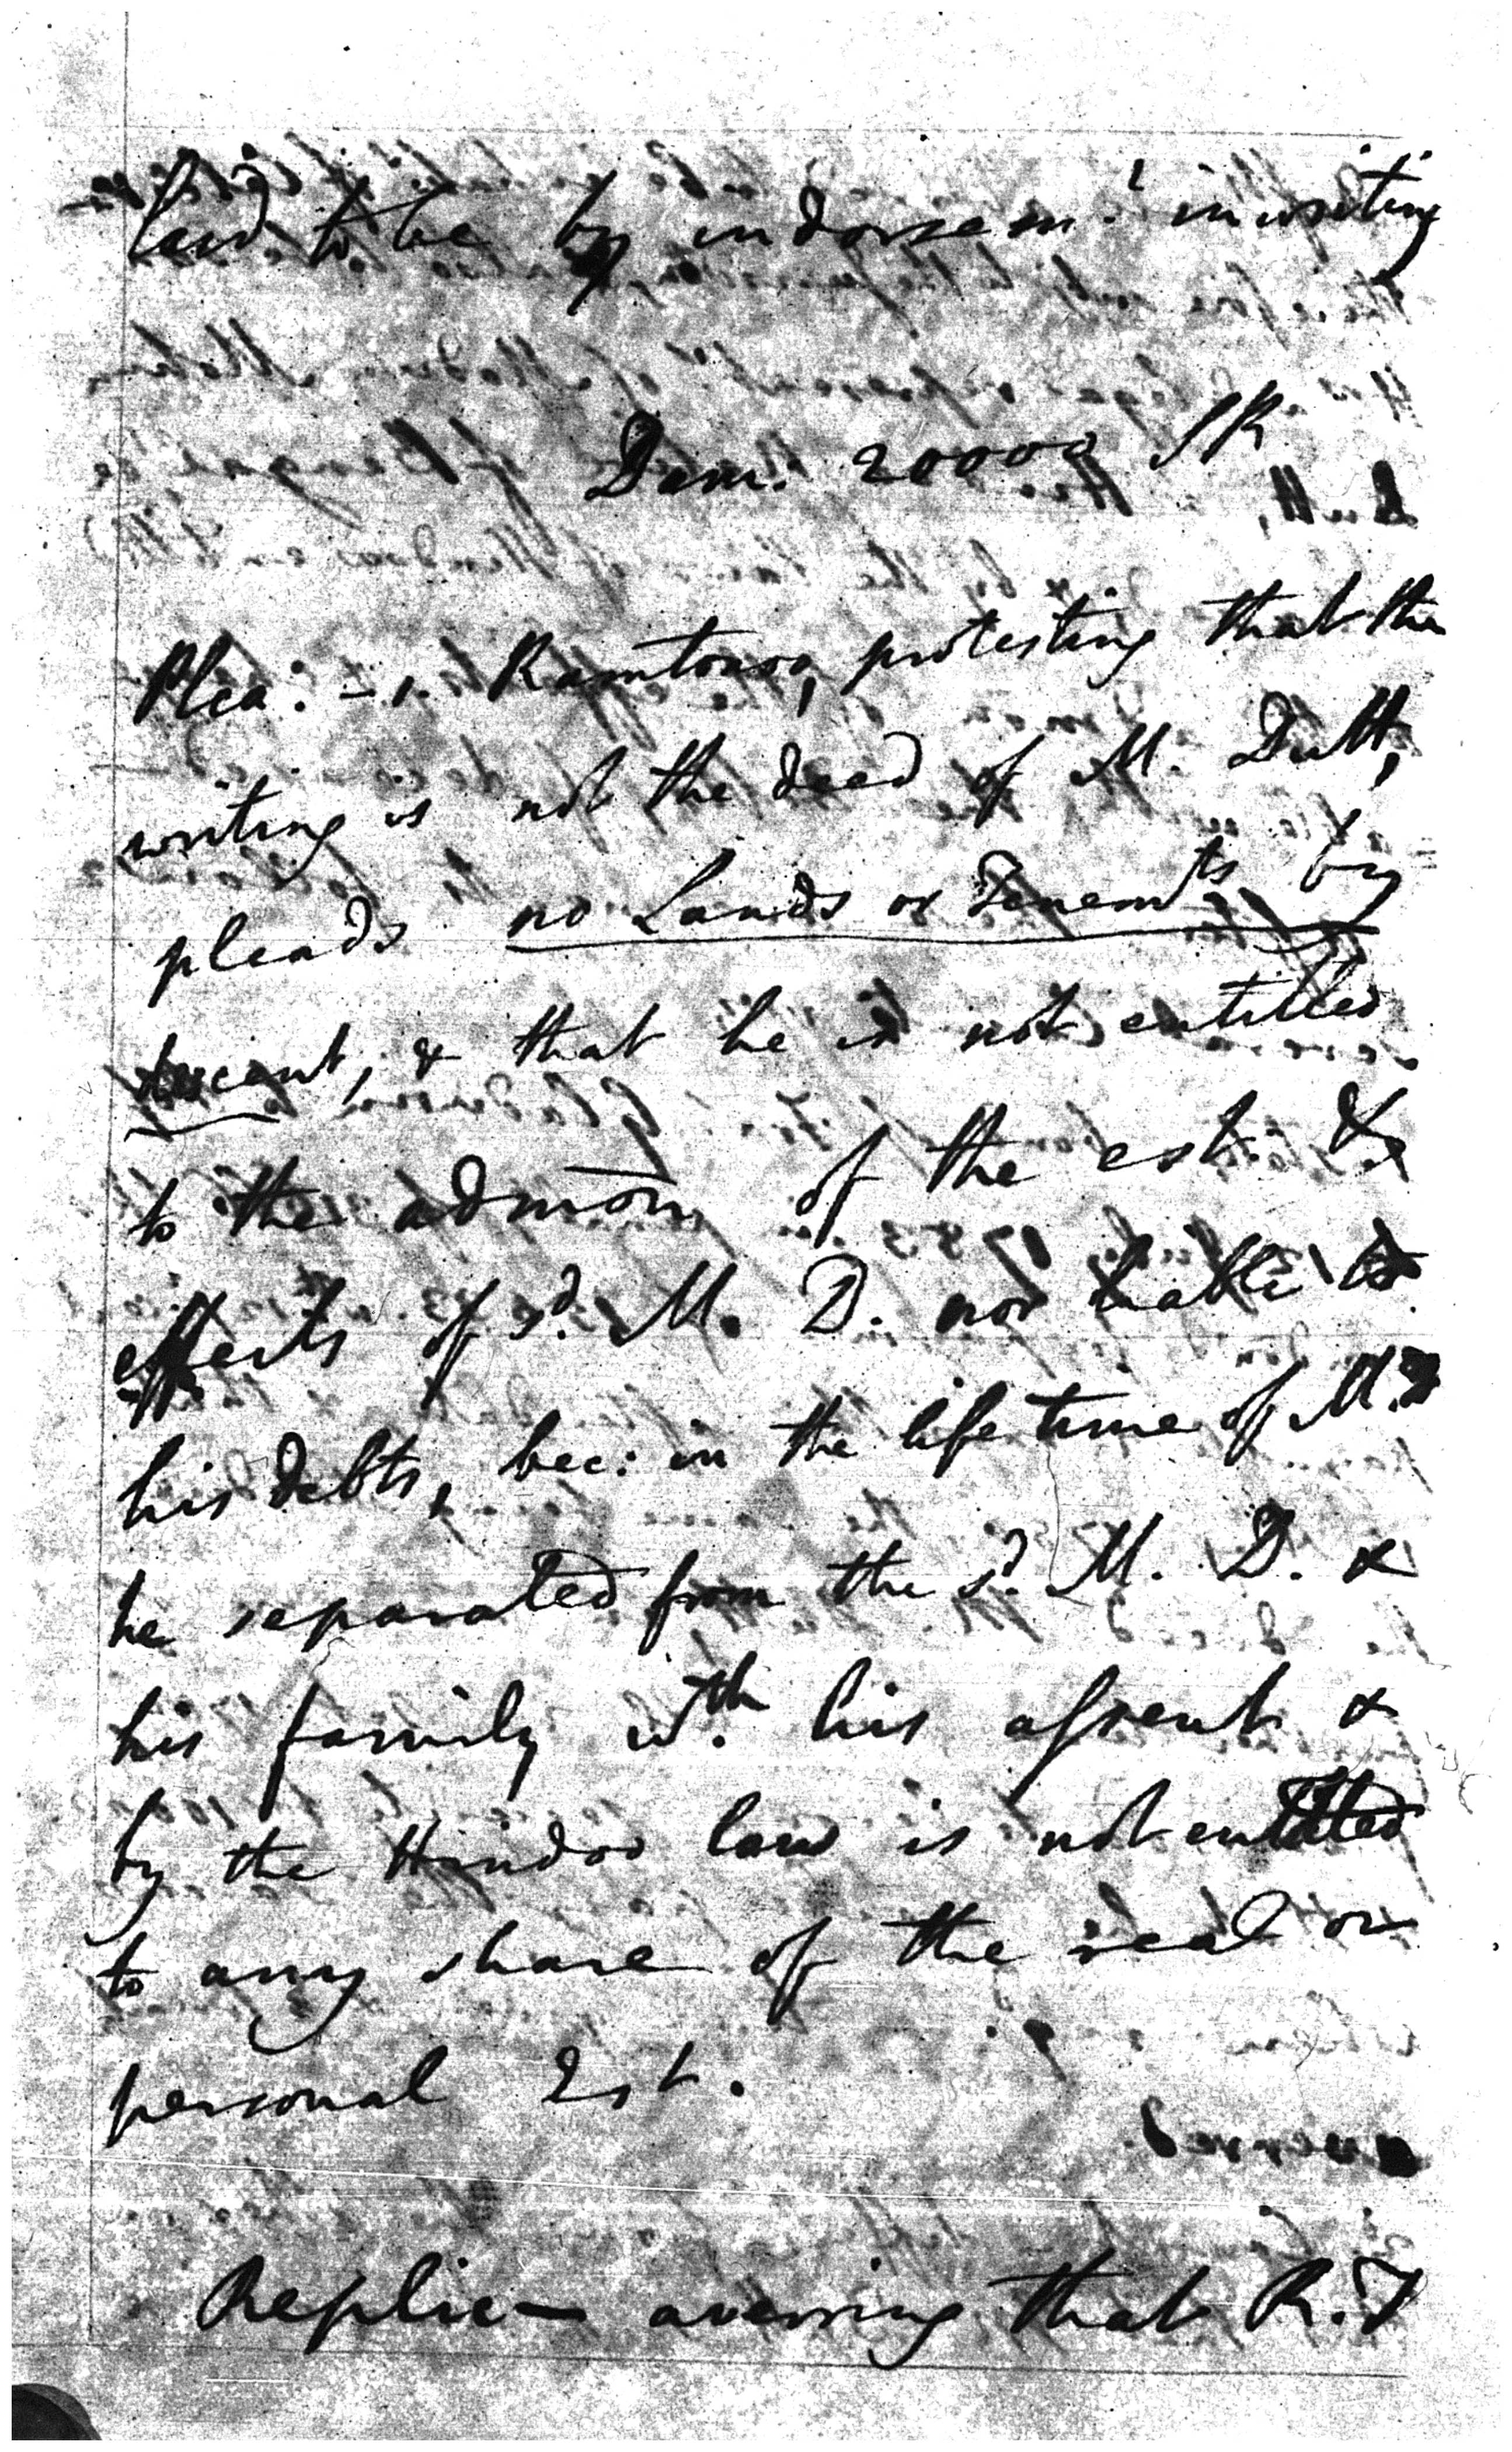 laid to be by indorsem.t in writing
Dam. 20000 SR
Plea: – 1. Ramtonoo, protesting that the
writing is not the deed of M. Dutt,
pleads no Lands or Tenemts by
descent, & that he is not entitled
to the admōn of the est. &
effects of sd. M. D. nor liable to
his debts, bec: in the life time of M. D
he separated from the sd. M. D. &
his family wth. his assent &
by the Hindoo law is not entitled
to any share of the real or
personal Est.
Replic– averring that R. T